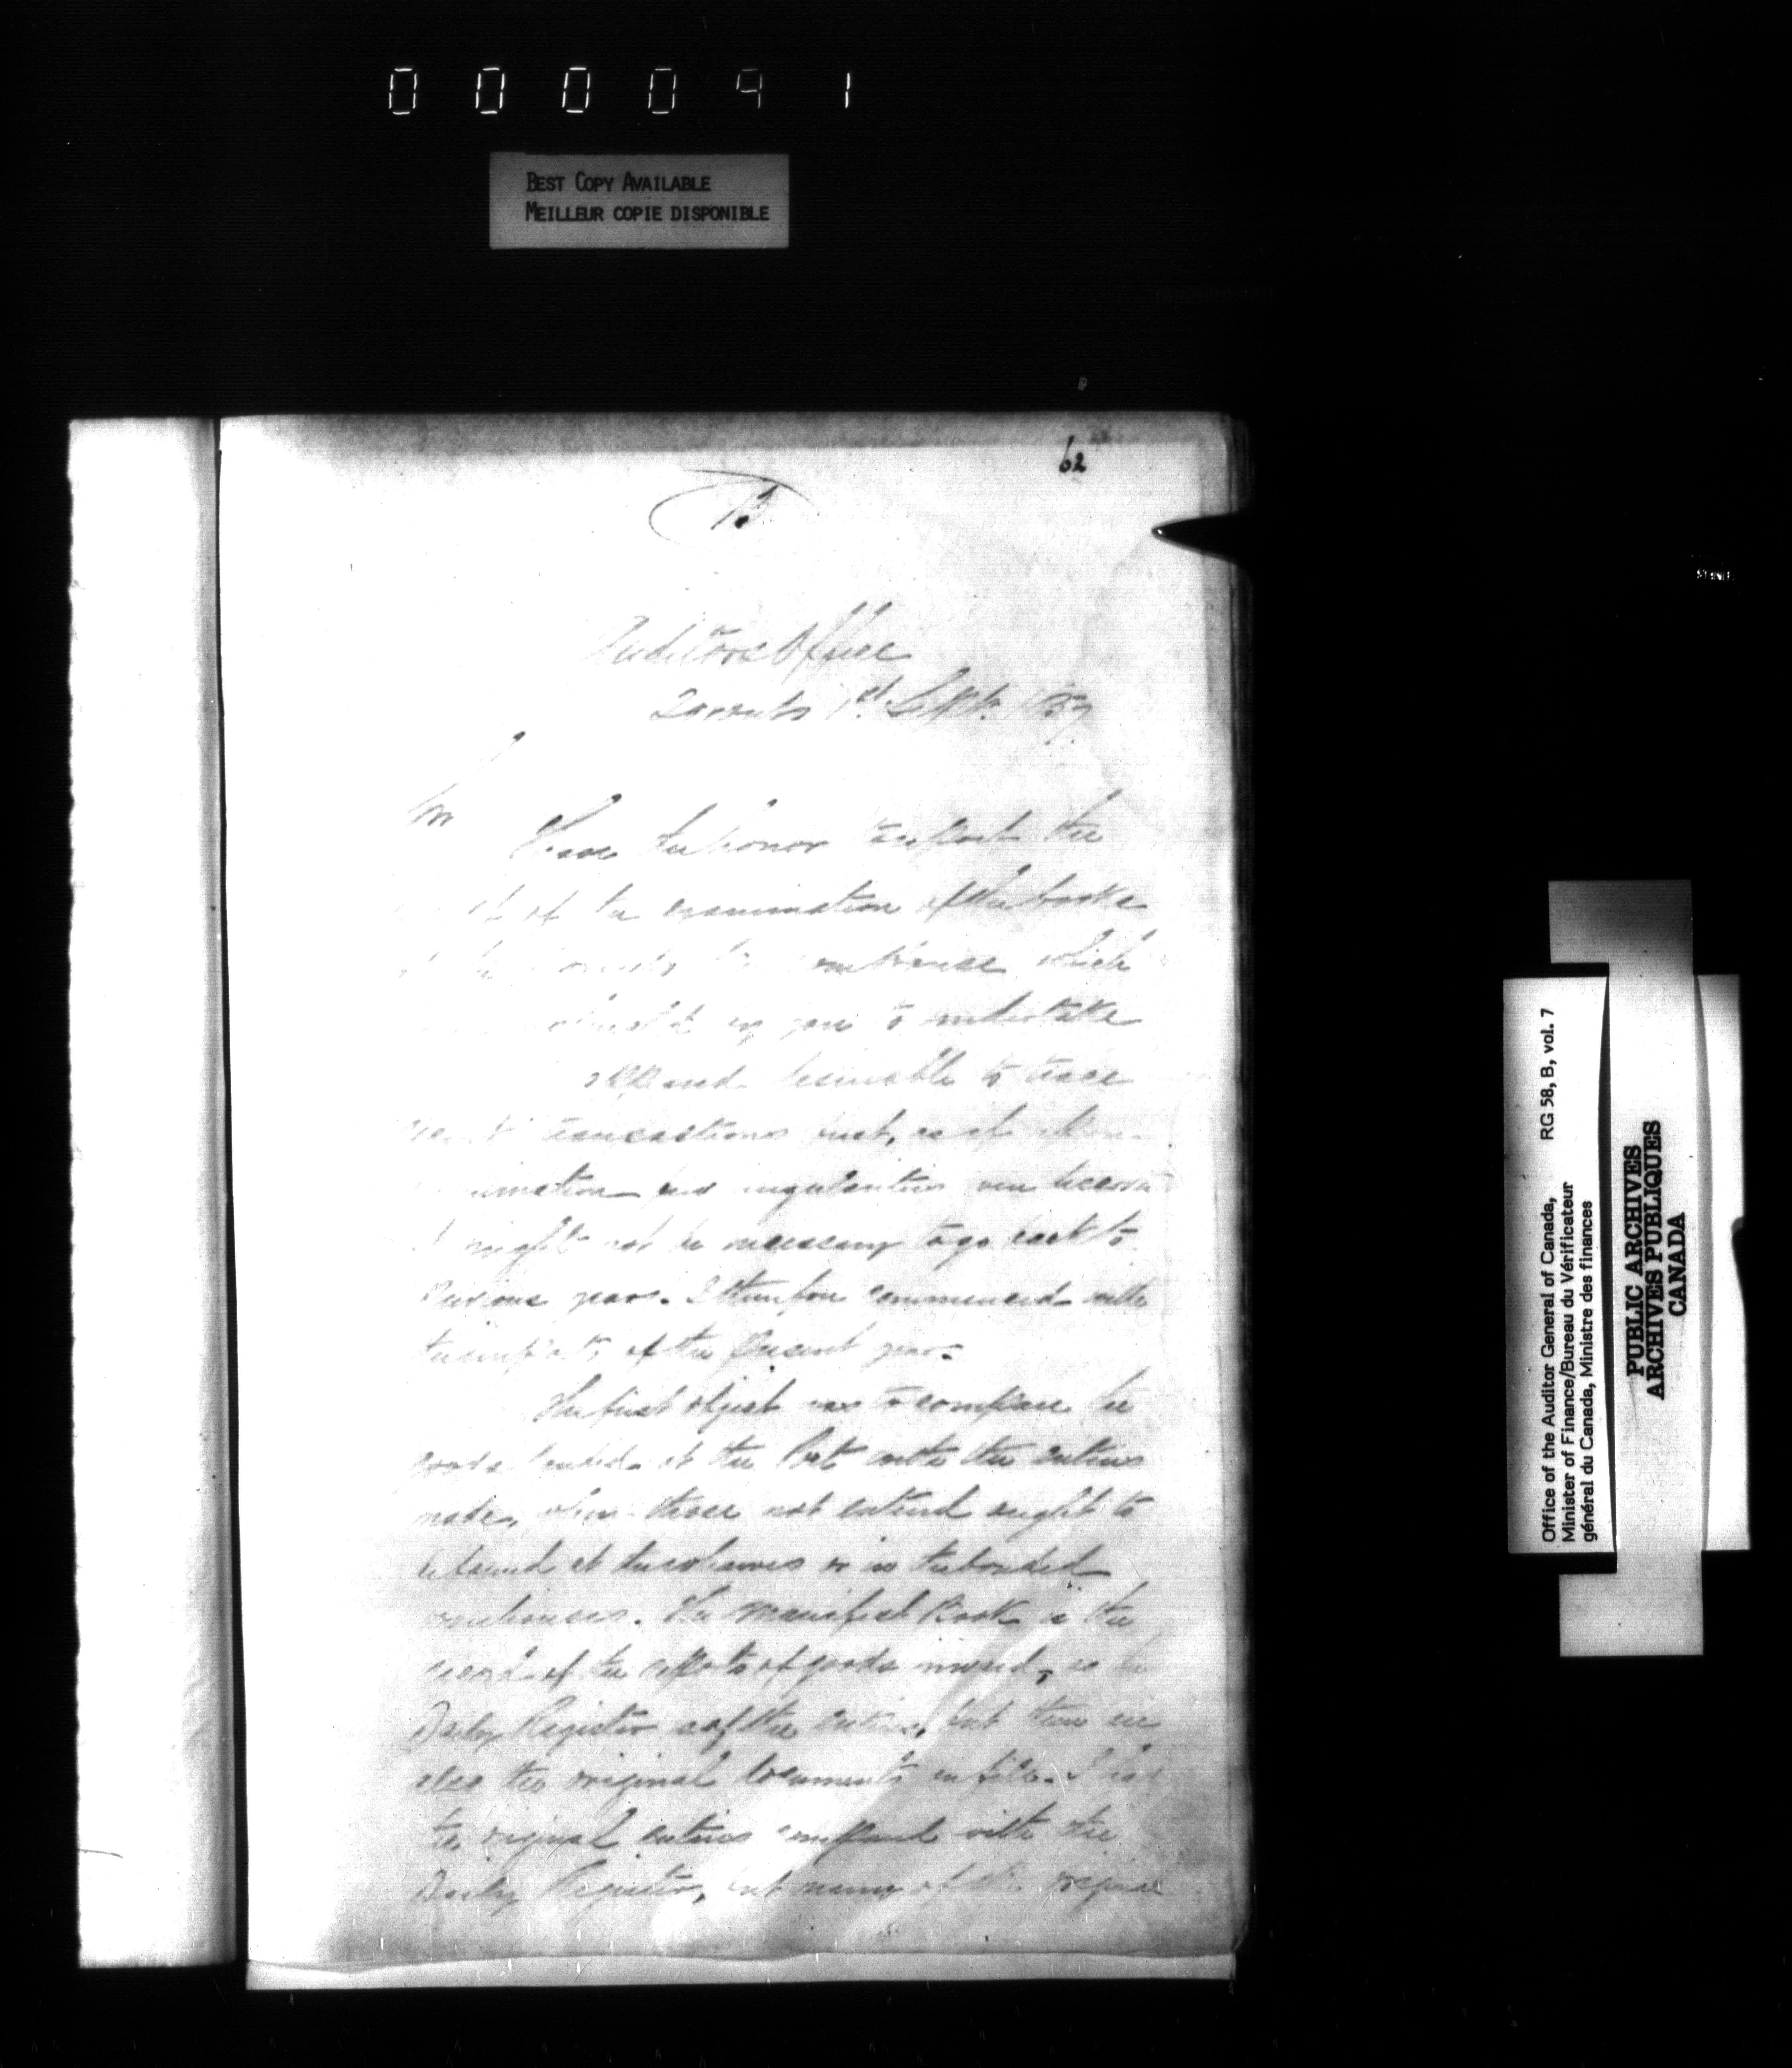 000091
BEST COPY AVAILABLE
MEILLEUR COPIE DISPONIBLE
62
B
Auditors Office
Toronto 1st Sept. 1857
Sir
I have the honor to report the
of the examination of the books
Customhouse which
by you to undertake
appeared desirable to trace
recent transactions first, as if
examination no irregularities were
it might not be necessary to go back to
previous years. I therefore commenced with
the imports of the present year.
The first object was to compare the
goods landed at the Port with the entries
made, when those not entered ought to
be found at the wharves or in the bonded
warehouses. The Manifest Book is the
record of the reports of goods inward, as the
Daily Register is of the entries, but there are
also the original documents on file. I had
the original entries compared with the
Daily Register, but many of the original
Office of the Auditor General of Canada, RG 58, B, vol. 7
Minister of Finance/Bureau du Vérificateur
général du Canada, Ministre des finances
PUBLIC ARCHIVES
ARCHIVES PUBLIQUES
CANADA